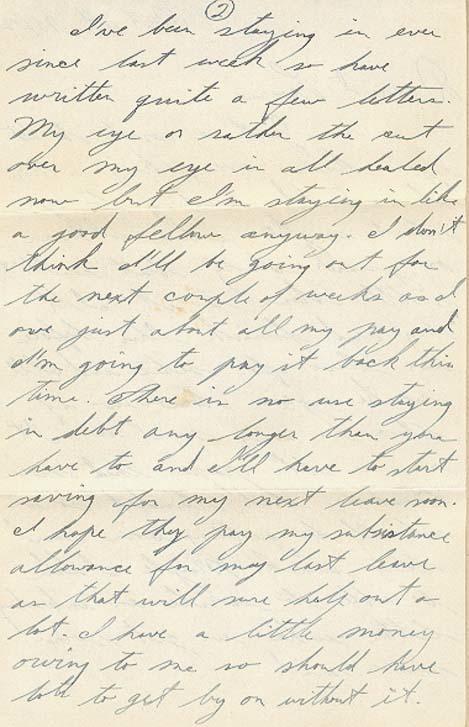 2
I've been staying in ever
since last week so have
written quite a few letters.
My eye or rather the cut
over my eye is all healed
now but I'm staying in like
a good fellow anyway. I don't
think I'll be going out for
the next couple of weeks as I
owe just about all my pay and
I'm going to pay it back this
time. There is no use staying
in debt any longer than you
have to and I'll have to start
saving for my next leave soon.
I hope they pay my subsistance
allowance for my last leave
as that will sure help out a
lot. I have a little money
owing to me so should have
lots to get by on without it.